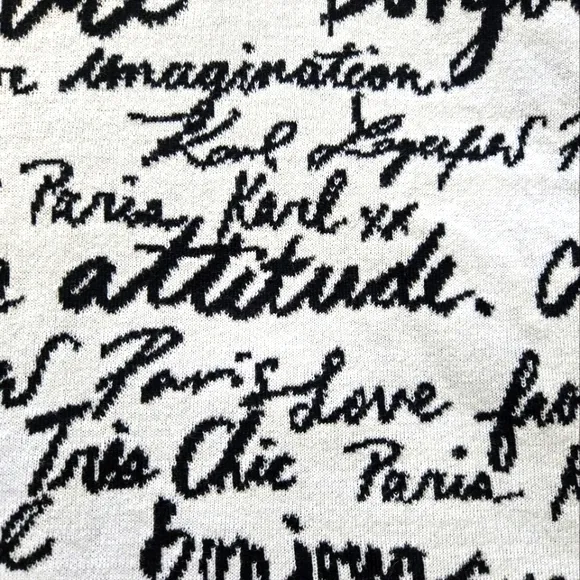 imagination.
Karl Lagerfeld
Paris, Karl xx
attitude.
Paris Love from
Très Chic Paris
bonjour